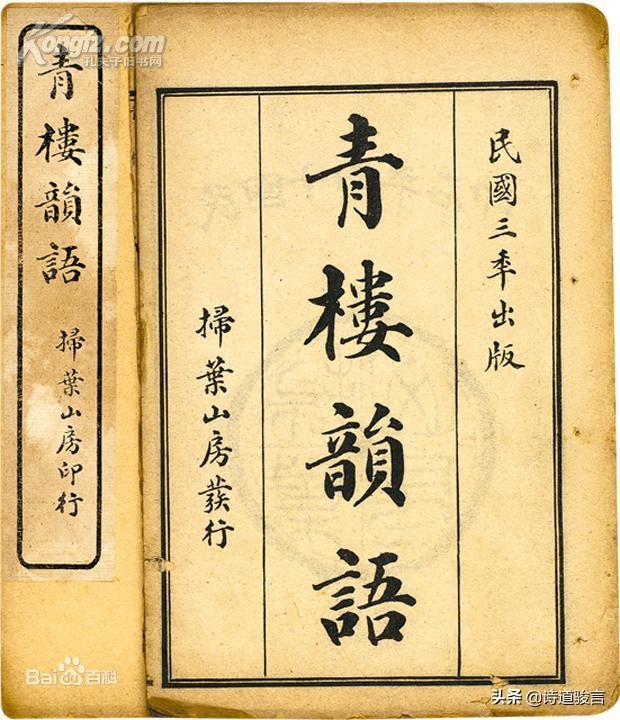 Kongfz.com
孔夫子旧书网
青樓韻語
掃葉山房印行
民國三年出版
青樓韻語
掃葉山房發行
Bai百科
头条 @诗道骏言